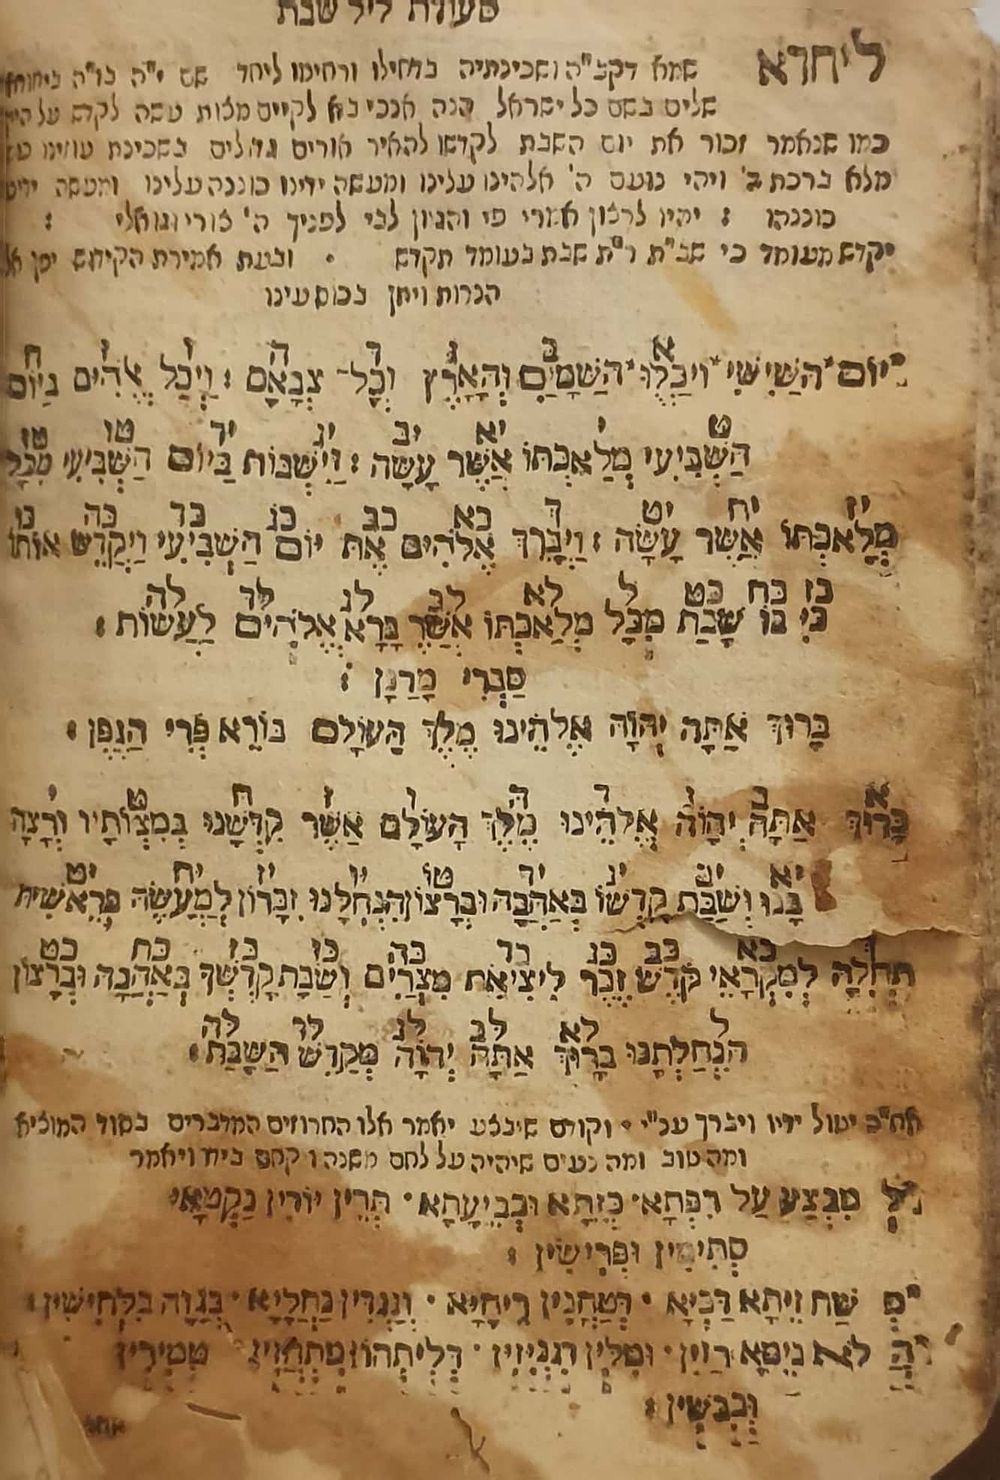 סעודת ליל שבת
ליחדא שמא דקב"ה ושכינתיה בדחילו ורחימו ליחד שם י"ה בו"ה ביחודא
שלים בשם כל ישראל הנה אנכי בא לקיים מצות עשה לקדש על היין
כמו שנאמר זכור את יום השבת לקדשו להאיר אורים גדולים בשכינת עוזינו
מלא ברכת ב' ויהי נועם ה' אלהינו עלינו ומעשה ידינו כוננה עלינו ומעשה ידינו
כוננהו : יהיו לרצון אמרי פי והגיון לבי לפניך ה' צורי וגואלי :
יקדש מעומד כי שב"ת ר"ת שבת בעומד תקדש . ובעת אמירת הקידוש יתן
הנרות ויתן בכוס עינו
א ב ג ד ה ו ז ח
יוֹם הַשִּׁישִּׁי וַיְכֻלּוּ הַשָּׁמַיִם וְהָאָרֶץ וְכָל־ צְבָאָם : וַיְכַל אֱלֹהִים בַּיּוֹם
ט י יא יב יג יד טו טז
הַשְּׁבִיעִי מְלַאכְתּוֹ אֲשֶׁר עָשָׂה : וַיִּשְׁבּוֹת בַּיּוֹם הַשְּׁבִיעִי מִכָּל
יז יח יט ך כא כב כג כד כה כו
מְלַאכְתּוֹ אֲשֶׁר עָשָׂה : וַיְבָרֶךְ אֱלֹהִים אֶת יוֹם הַשְּׁבִיעִי וַיְקַדֵּשׁ אוֹתוֹ
כז כח כט ל לא לב לג לד לה
כִּי בוֹ שָׁבַת מִכָּל מְלַאכְתּוֹ אֲשֶׁר בָּרָא אֱלֹהִים לַעֲשׂוֹת :
סַבְרִי מָרָנָן :
בָּרוּךְ אַתָּה יְהוָֹה אֱלֹהֵינוּ מֶלֶךְ הָעוֹלָם בּוֹרֵא פְּרִי הַגֶּפֶן :
א ב ג ד ה ו ז ח ט י
בָּרוּךְ אַתָּה יְהוָֹה אֱלֹהֵינוּ מֶלֶךְ הָעוֹלָם אֲשֶׁר קִדְּשָׁנוּ בְּמִצְוֹתָיו וְרָצָה
יא יב יג יד טו יו יז יח יט
בָנוּ וְשַׁבַּת קָדְשׁוֹ בְּאַהֲבָה וּבְרָצוֹן הִנְחִילָנוּ זִכָּרוֹן לְמַעֲשֵׂה בְרֵאשִׁית
ך כא כב כג כד כה כו כז כח כט
תְּחִלָּה לְמִקְרָאֵי קֹדֶשׁ זֵכֶר לִיצִיאַת מִצְרַיִם וְשַׁבַּת קָדְשְׁךָ בְּאַהֲבָה וּבְרָצוֹן
ל לא לב לג לד לה
הִנְחַלְתָּנוּ בָּרוּךְ אַתָּה יְהוָֹה מְקַדֵּשׁ הַשַּׁבָּת :
אח"כ יטול ידיו ויברך ענ"י . וקודם שיבצע יאמר אלו החרוזים המדברים בסוד המוציא
ומה טוב ומה נעים שיהיה על לחם משנה וקחם ביד ויאמר
מִבְצַע עַל רִפְתָּא . כְּזֵתָא וּכְבֵיעָתָא . תְּרֵין יוֹדִין נַקְטָא
סְתִימִין וּפְרִישִׁין :
שַׁח זֵיתָא דַּכְיָא . דְּטַחֲנִין רֵיחַיָּא . וְנַגְדִין נַחְלַיָּא . בְּגַוָּה בִּלְחִישִׁין :
לֹא נֵימָא רָזִין . וּמִלִּין דִּגְנִיזִין . דְּלֵיתְהוֹן מִתְחֲזִין טְמִירִין
וּכְבִישִׁין :